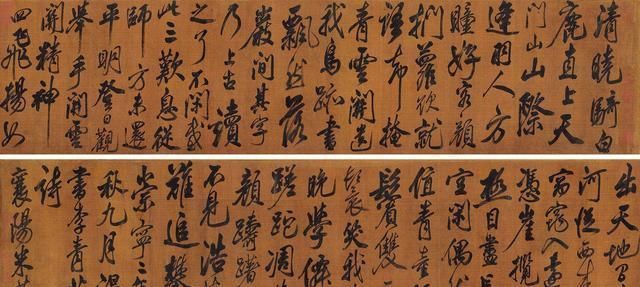 清曉騎白
鹿直上天
門山山際
逢羽人方
瞳好容顏
捫蘿欲就
語却掩
青雲關遺
我鳥跡書
飄然落
巖間其字
乃上古讀
之了不閑感
此三歎息從
師方未還
平明登日觀
舉手開雲
關精神
四飛揚如
出天地間
河從西
窈窕入
憑崖攬
極目盡
空閑偶
值青童
雙
笑我
晚學僊
蹉跎凋
顏躊躇
不見浩
難追攀
崇寧二
秋九月
書李青
詩
襄陽米